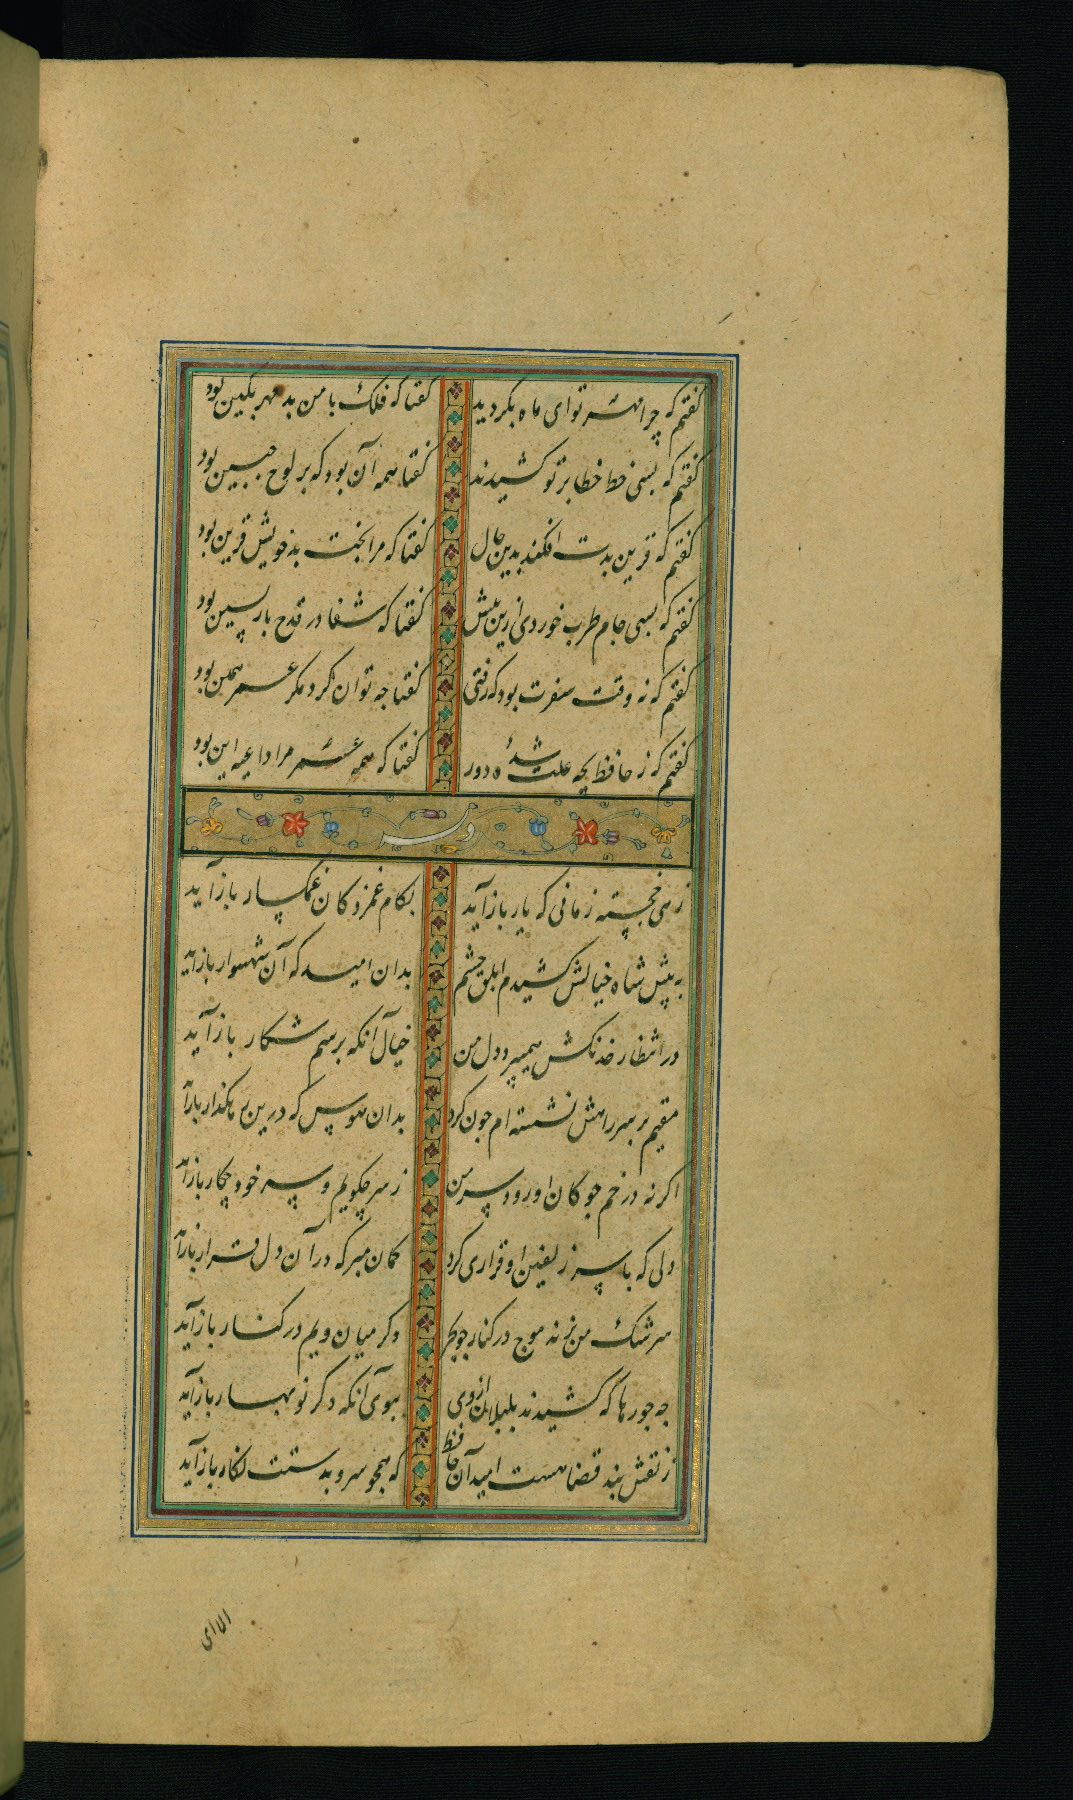 گفتم که چرا مهر تو ای ماه بگردید گفتا که فلک با من بد مهر بکین بود
گفتم که بسی خط خطا بر تو کشیدند گفتا همه آن بود که بر لوح جبین بود
گفتم که قرین بدت افکند بدین حال گفتا که مرا بخت بد خویش قرین بود
گفتم که بسی جام طرب خوردی ازین پیش گفتا که شفا در قدح بازپسین بود
گفتم که نه وقت سفرت بود که رفتی گفتا چه توان کرد مکر عمر همین بود
گفتم که ز حافظ بچه علت شدهٔ دور گفتا که همه عمر مرا داعیه این بود
وله
زهی خجسته زمانی که یار بازآید بکام غمزدکان غمکسار بازآید
به پیش شاه خیالش کشیدم ابلق چشم بدان امید که آن شهسوار بازآید
در انتظار خدنکش همیپرد دل من خیال آنکه برسم شکار بازآید
مقیم بر سر راهش نشسته ام چون کرد بدان هوس که درین رهکذار بازآ
اکر نه در خم چوکان او رود سر من ز سر چکویم و سر خود چکار بازآید
دلی که با سر زلفین او قراری کرد کمان مبر که در آن دل قرار بازآید
سرشک من نزند موج در کنار چو بحر کر میان ویم در کنار بازآید
چه جورها که کشیدند بلبلان از دی ببوی آنکه دکر نوبهار بازآید
ز نقش بند قضا هست امید آن حافظ که همچو سرو بدستت نکار بازآید
الا ای